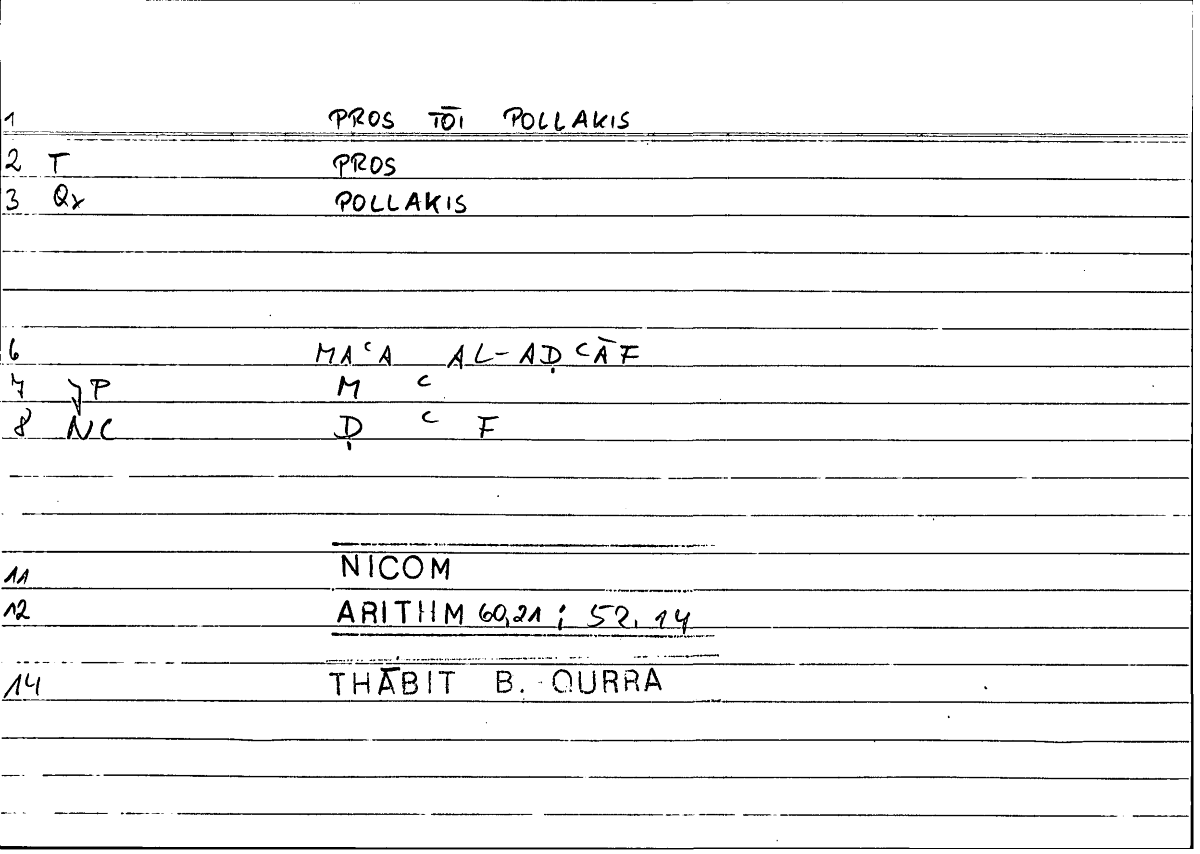 1 PROS TŌI POLLAKIS
2 T PROS
3 Qx POLLAKIS
6 MAʿA AL-AḌʿĀF
7 JP M ʿ
8 NC Ḍ ʿ F
11 NICOM
12 ARITHM 60,21 ; 52, 14
14 THĀBIT B. QURRA